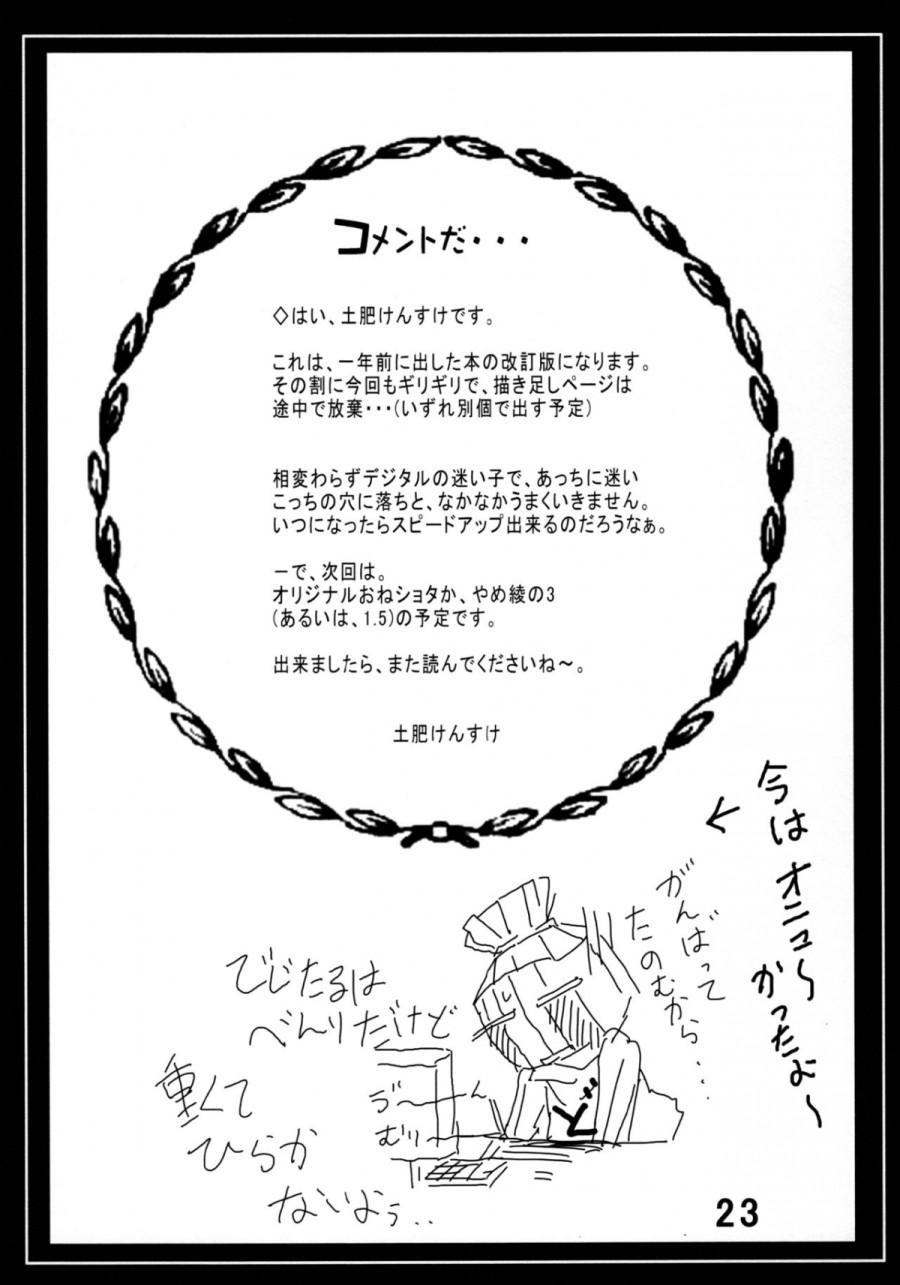 コメントだ・・・
◇はい、土肥けんすけです。
これは、一年前に出した本の改訂版になります。
その割に今回もギリギリで、描き足しページは
途中で放棄・・・(いずれ別個で出す予定)
相変わらずデジタルの迷い子で、あっちに迷い
こっちの穴に落ちと、なかなかうまくいきません。
いつになったらスピードアップ出来るのだろうなぁ。
－で、次回は。
オリジナルおねショタか、やめ綾の3
(あるいは、1.5)の予定です。
出来ましたら、また読んでくださいね～。
土肥けんすけ
今は
かったよ～
←
がんばって
たのむから・・・
でじたるは
べんりだけど
重くて
ひらか
ないよぅ・・
むり
23